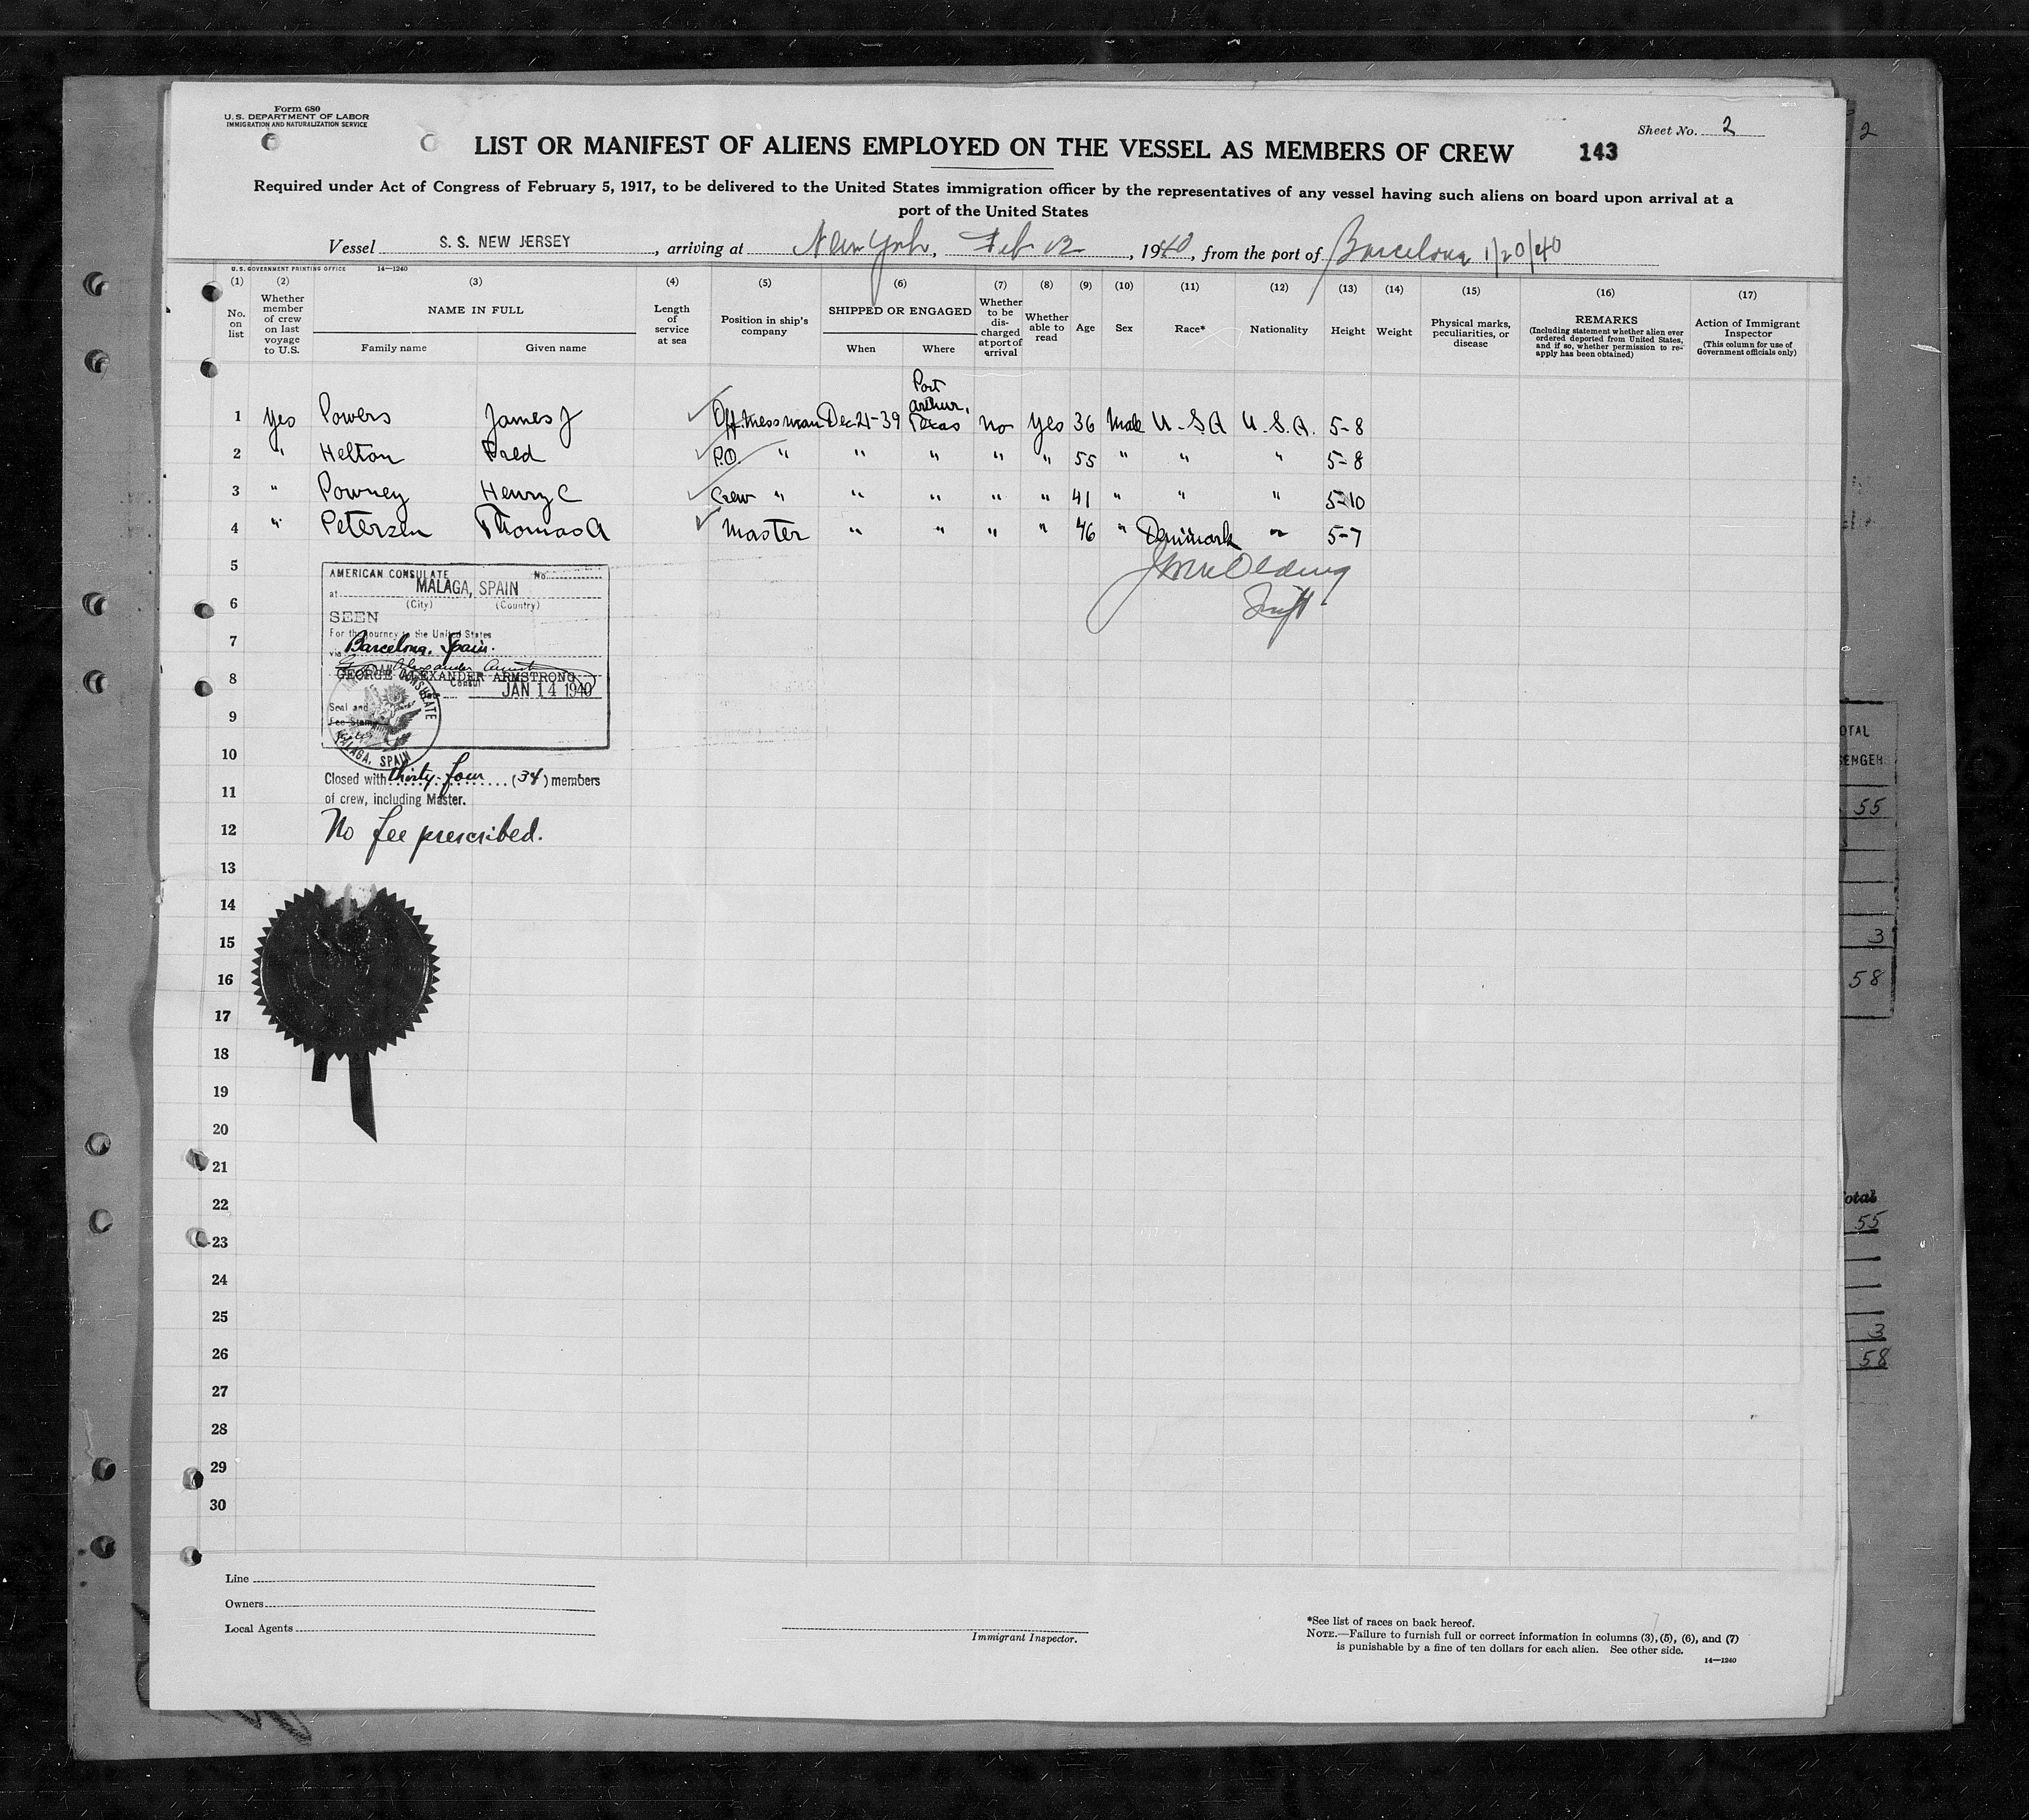 Form 680
U. S. DEPARTMENT OF LABOR
IMMIGRATION AND NATURALIZATION SERVICE
Sheet No. 2
2
LIST OR MANIFEST OF ALIENS EMPLOYED ON THE VESSEL AS MEMBERS OF CREW 143
Required under Act of Congress of February 5, 1917, to be delivered to the United States immigration officer by the representatives of any vessel having such aliens on board upon arrival at a
port of the United States
Vessel S. S. NEW JERSEY, arriving at New York, Feb 12, 1940, from the port of Barcelona 1/20/40
U. S. GOVERNMENT PRINTING OFFICE 14—1240
(1) (2) (3) (4) (5) (6) (7) (8) (9) (10) (11) (12) (13) (14) (15) (16) (17)
No. on list
Whether member of crew on last voyage to U.S.
NAME IN FULL
Family name Given name
Length of service at sea
Position in ship's company
SHIPPED OR ENGAGED
When Where
Whether to be discharged at port of arrival
Whether able to read
Age
Sex
Race*
Nationality
Height
Weight
Physical marks, peculiarities, or disease
REMARKS
(Including statement whether alien ever ordered deported from United States, and if so, whether permission to reapply has been obtained)
Action of Immigrant Inspector
(This column for use of Government officials only)
1 Yes Powers James J Off. Messman Dec 21-39 Port Arthur, Texas no Yes 36 Male U.S.A U.S.A. 5-8
2 " Helton Fred P.O. " " " " " 55 " " " 5-8
3 " Powney Henry C Crew " " " " " 41 " " " 5-10
4 " Petersen Thomas A Master " " " " 46 " Denmark " 5-7
5
6
7
8
9
10
11
12
13
14
15
16
17
18
19
20
21
22
23
24
25
26
27
28
29
30
AMERICAN CONSULATE No.
at MALAGA, SPAIN
(City) (Country)
SEEN
For the journey to the United States
via Barcelona, Spain.
GEORGE ALEXANDER ARMSTRONG
Consul
JAN 14 1940
Seal and
Fee Stamp
AMERICAN CONSULATE
MALAGA, SPAIN
Closed with thirty-four (34) members
of crew, including Master.
No fee prescribed.
OTAL
SENGER
55
3
58
otal
55
3
58
Line
Owners
Local Agents
Immigrant Inspector.
*See list of races on back hereof.
NOTE.—Failure to furnish full or correct information in columns (3), (5), (6), and (7)
is punishable by a fine of ten dollars for each alien. See other side.
14—1240